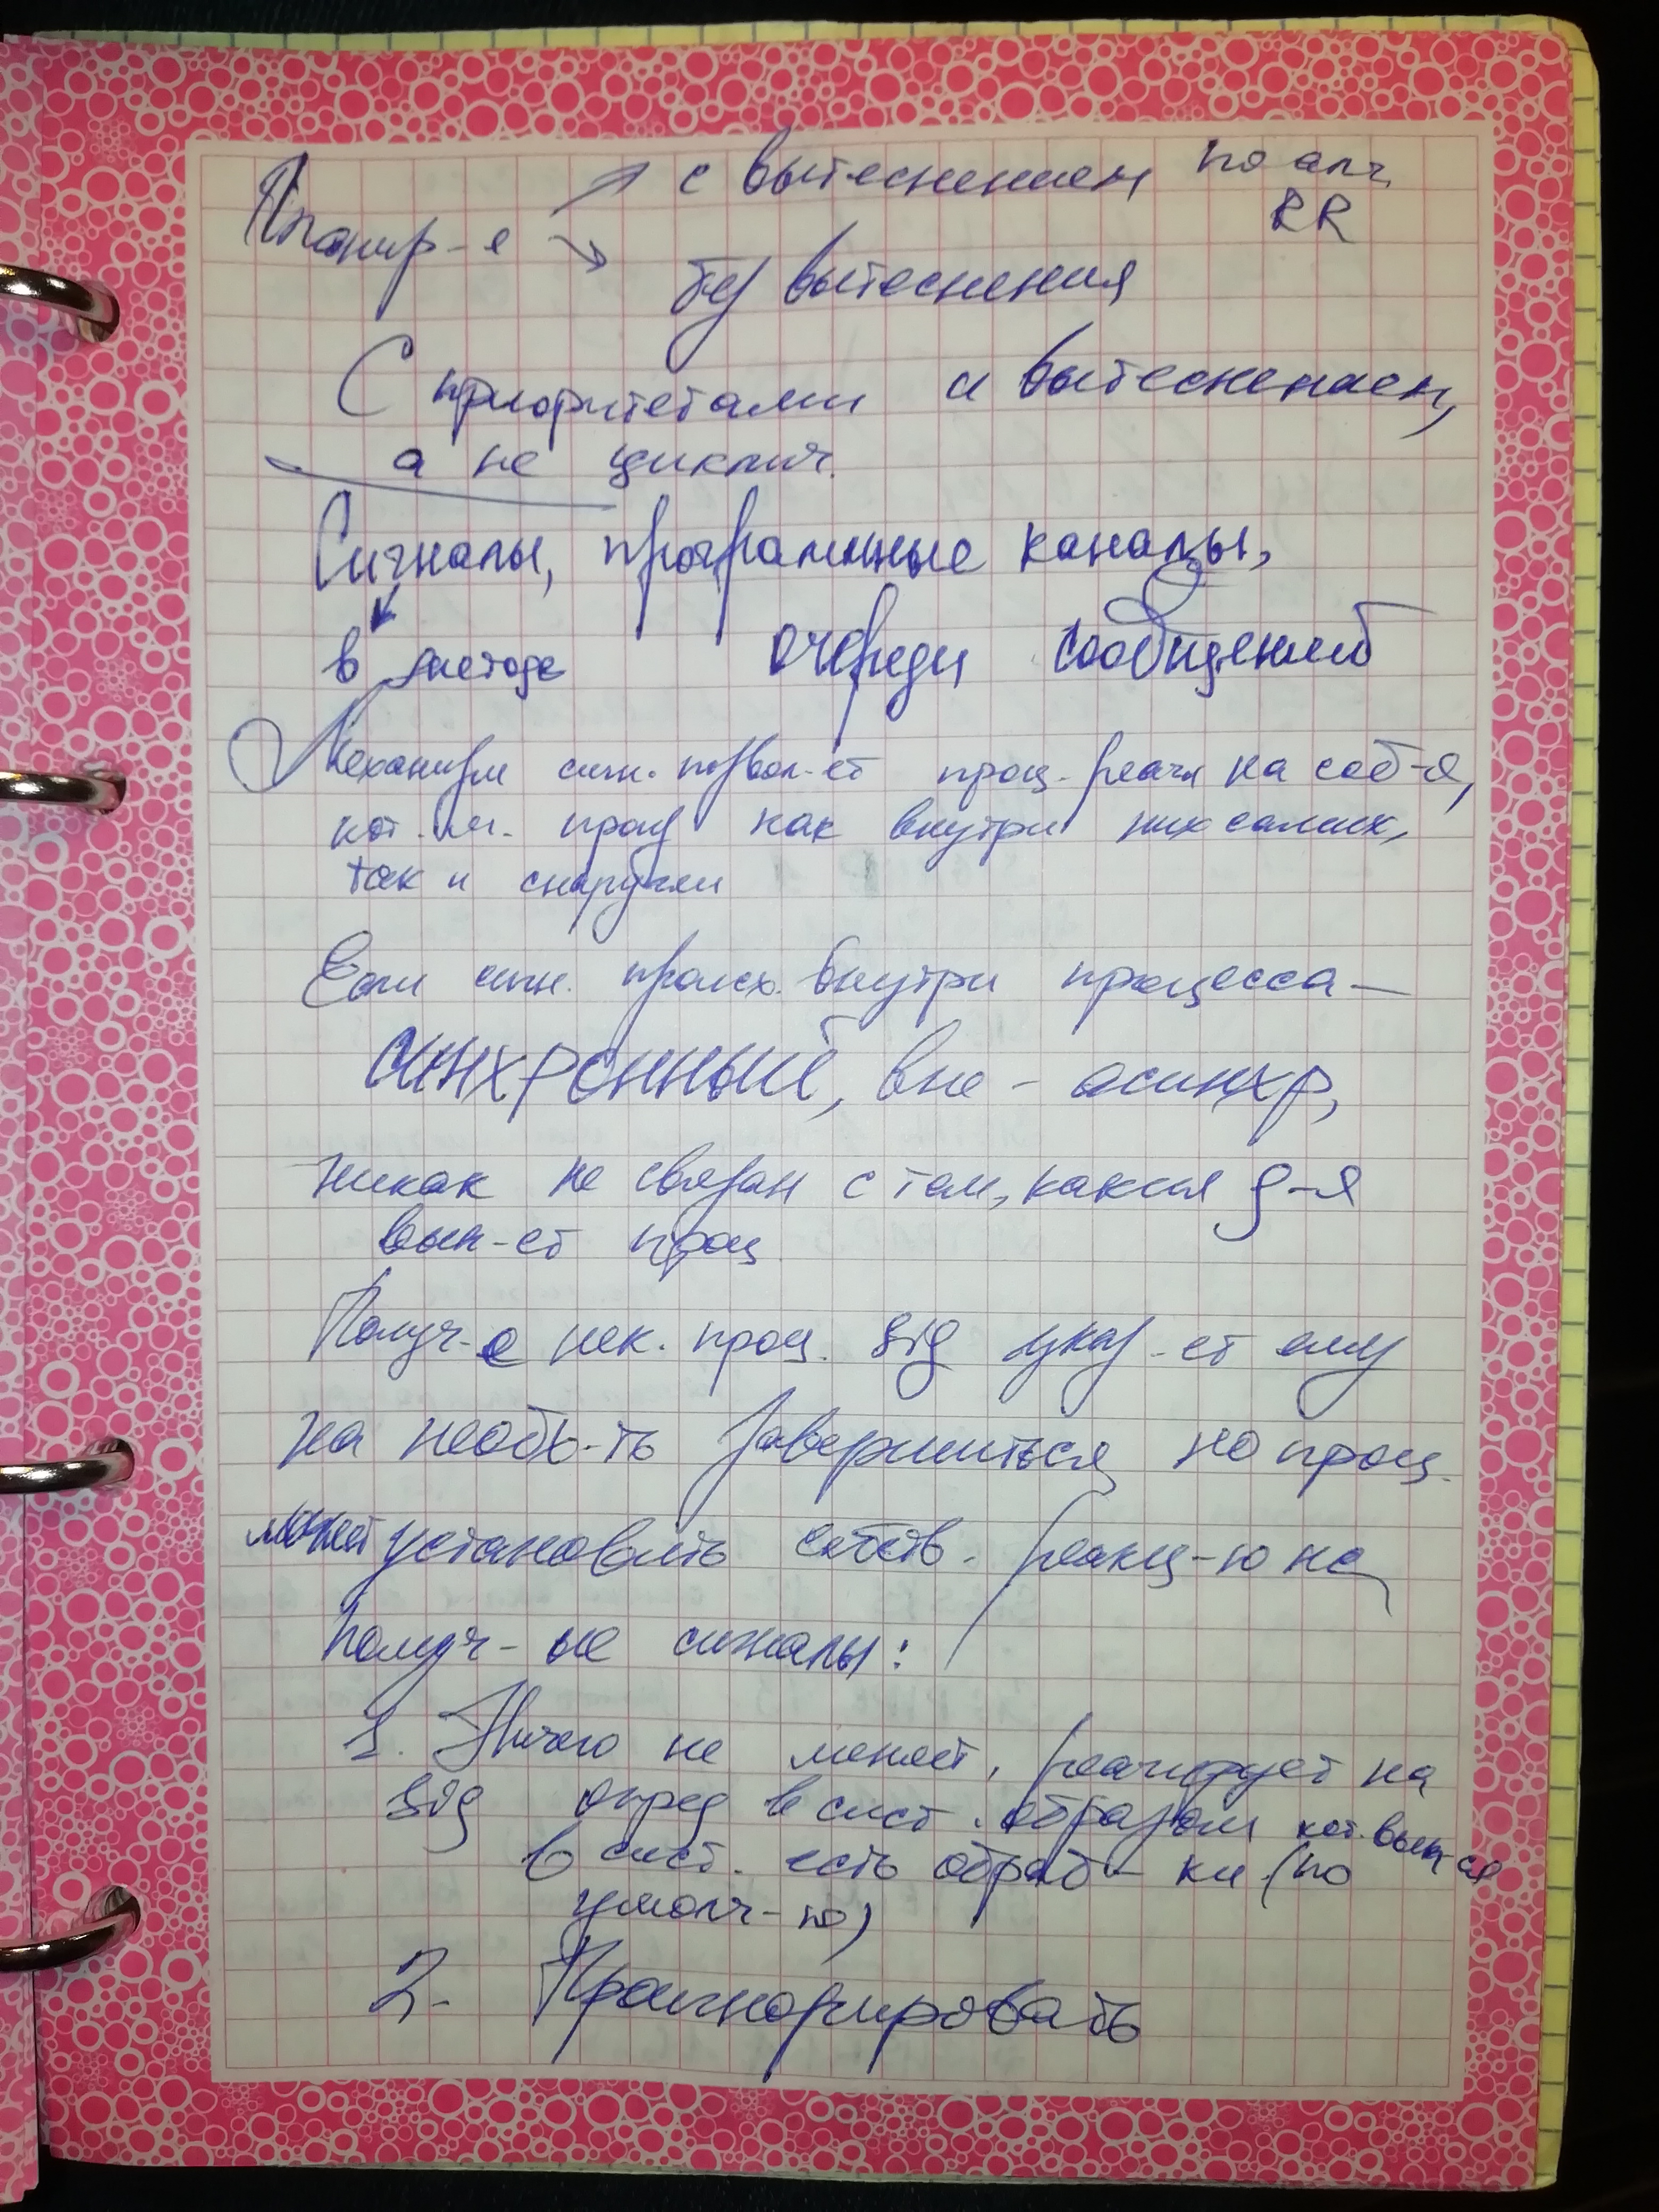 с вытеснением по алг.
RR
Планир-е
без вытеснения
С приоритетами и вытеснением,
а не циклич.
Сигналы, программные каналы,
в методе очереди сообщений
Механизм сигн. позвол-ет проц. реаги на соб-я,
кот. м. проц как внутри них самих,
так и снаружи
Если сигн. происх. внутри процесса —
синхронный, вне - асинхр,
никак не связан с тем, какия д-я
вып-ет проц
Получ-е нек. проц. sig указ-ет ему
на необх-ть завершиться но проц.
может установить собств. реакц-ю на
получ-ые сигналы:
1. Ничего не меняет, реагирует на
sig опред в сист. образом кот. вып-ся
в сист. есть обраб-ки (по
умолч-ю)
2. Проигнорировать